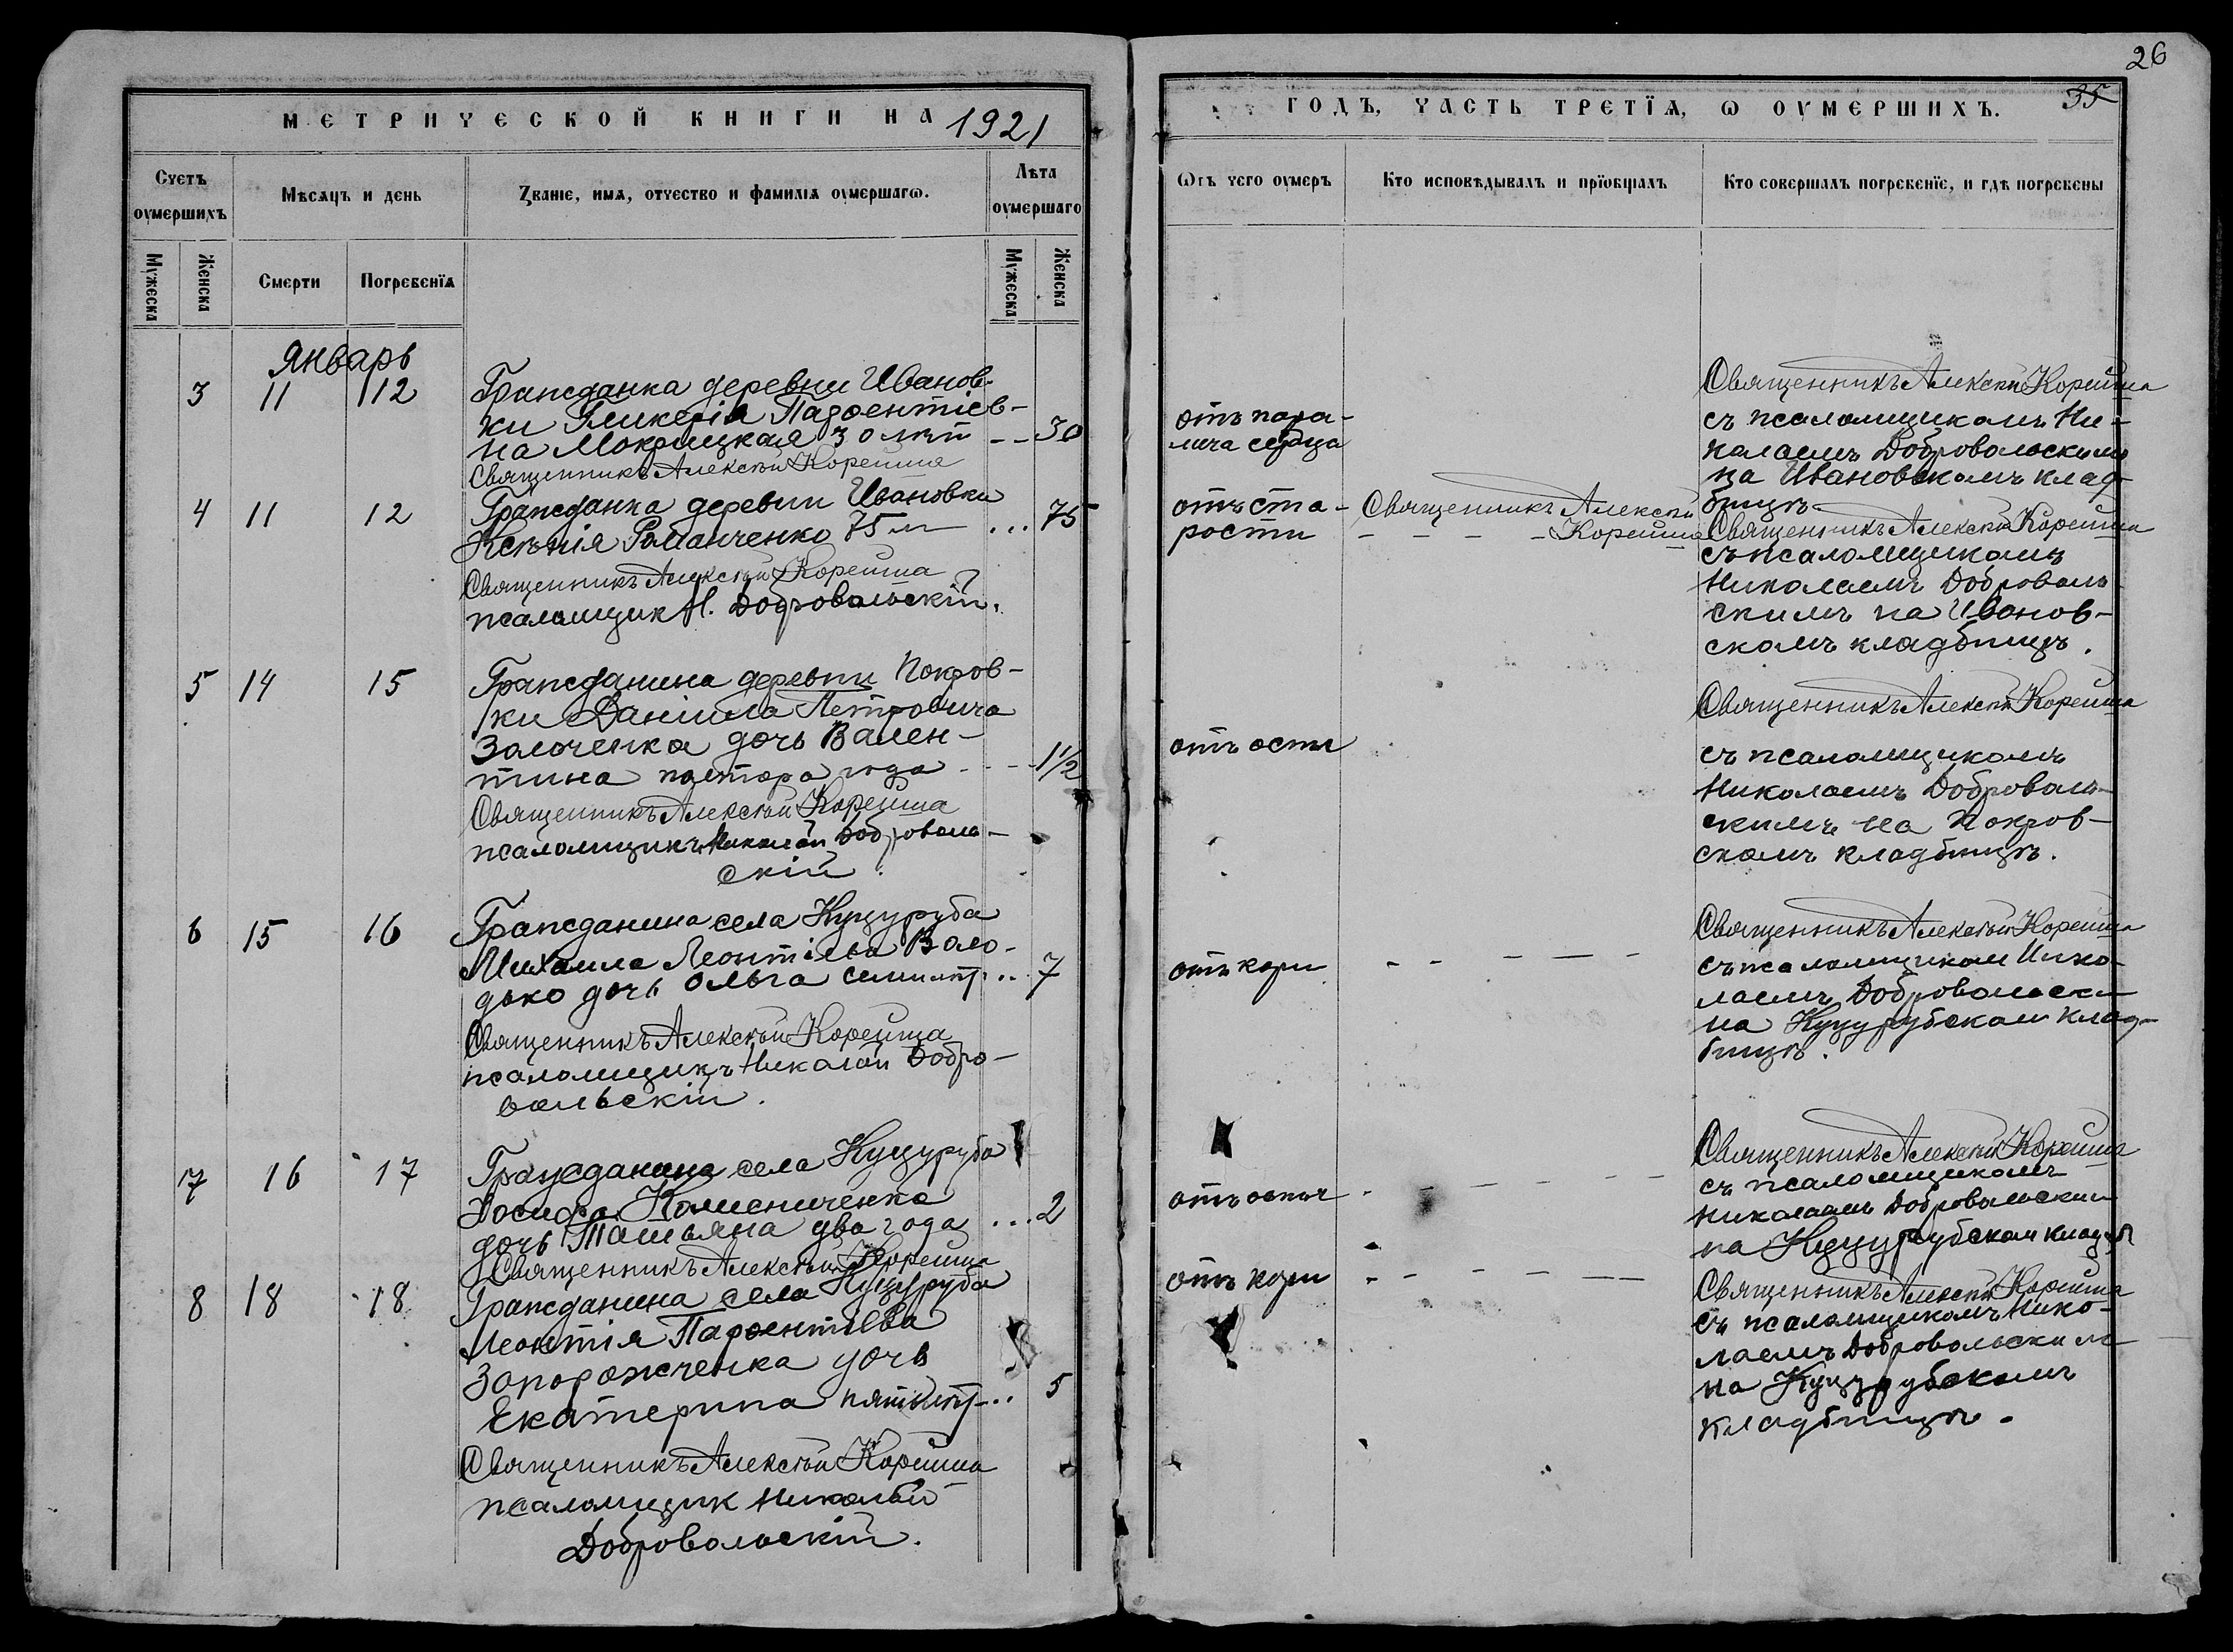 26
МЕТРИЧЕСКОЙ КНИГИ НА 1921
ГОДЪ, ЧАСТЬ ТРЕТЇѦ, Ѡ ОУМЕРШИХЪ. 35
Счетъ оумершихъ
Мѣсѧцъ и день
Званіе, имѧ, отчество и фамиліѧ оумершагѡ.
Лѣта оумершаго
Ѡтъ чего оумеръ
Кто исповѣдывалъ и прїобщалъ
Кто совершалъ погребенїе, и гдѣ погребены
Мужеска
Женска
Смерти
Погребенїѧ
Мужеска
Женска
Январь
3 11 12
Гражданка деревни Иванов-
ки Гликерія Парѳентіев-
на Мокрицкая 30 лѣт -- 30
Священникъ Алексѣй Корейша
отъ пара-
лича сердца
Священникъ Алексѣй Корейша
съ псаломщикомъ Ни-
колаемъ Добровольскимъ
на Ивановскомъ клад-
бищѣ
4 11 12
Гражданка деревни Ивановки
Ксенія Романченко 75 л ... 75
Священникъ Алексѣй Корейша
псаломщик Н. Добровольскій.
отъ ста-
рости
Священникъ Алексѣй
- - - - Корейша
Священникъ Алексѣй Корейша
съ псаломщикомъ
Николаемъ Доброволь-
скимъ на Иванов-
скомъ кладбищѣ.
5 14 15
Гражданина деревни Покров-
ки Даніила Петровича
Золоченка дочь Вален-
тина полтора года - - - 1 1/2
Священникъ Алексѣй Корейша
псаломщикъ Николай Доброволь-
скій.
отъ оспы
Священникъ Алексѣй Корейша
съ псаломщикомъ
Николаемъ Доброволь-
скимъ на Покров-
скомъ кладбищѣ.
6 15 16
Гражданина села Куцуруба
Михаила Леонтіева Воло-
дько дочь Ольга семи лѣт .. 7
Священникъ Алексѣй Корейша
псаломщикъ Николай Добро-
вольскій.
отъ кори - - - - -
Священникъ Алексѣй Корейша
съ псаломщиком Нико-
лаемъ Добровольски
на Куцурубском клад-
бищѣ.
7 16 17
Гражданина села Куцуруба
Іосифа Камениченка
дочь Татьяна два года ... 2
Священникъ Алексѣй Корейша
отъ оспы - - - - - -
Священникъ Алексѣй Корейша
съ псаломщикомъ
Николаемъ Добровольским
на Куцурубском кладб
8 18 18
Гражданина села Куцуруба
Леонтія Парѳентіева
Запорожченка дочь
Екатерина пяти лѣт ... 5
Священникъ Алексѣй Корейша
псаломщик Николай
Добровольскій.
отъ кори - - - - - -
Священникъ Алексѣй Корейша
съ псаломщикомъ Нико-
лаемъ Добровольским
на Куцурубскомъ
кладбищѣ.